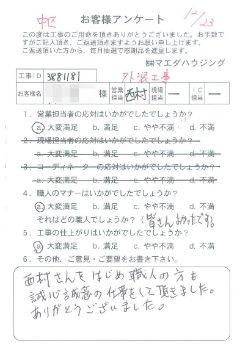 中区
お客様アンケート
12/23
この度は工事のご用命を頂きありがとうございました。お手数で
すがご記入頂き、ご返送頂きますようお願い申し上げます。
ご返送頂いた方から、毎月抽選で感謝品を進呈します。
㈱マエダハウジング
工事ID 3881181 外装工事
お客様名 様 営業担当 西村 現場担当 ー IC担当 ー
1. 営業担当者の応対はいかがでしたでしょうか?
ⓐ 大変満足 b. 満足 c. やや不満 d. 不満
2. 現場担当者の応対はいかがでしたでしょうか?
a. 大変満足 b. 満足 c. やや不満 d. 不満
3. コーディネーターの応対はいかがでしたでしょうか?
a. 大変満足 b. 満足 c. やや不満 d. 不満
4. 職人のマナーはいかがでしたでしょうか?
ⓐ 大変満足 b. 満足 c. やや不満 d. 不満
それはどの職人でしょうか?(皆さん よかったです。)
5. 工事の仕上がりはいかがでしたでしょうか?
ⓐ 大変満足 b. 満足 c. やや不満 d. 不満
6. その他、ご意見・ご要望をお書き下さい。
西村さんをはじめ職人の方も
誠心誠意の仕事をして頂きました。
ありがとうございました。